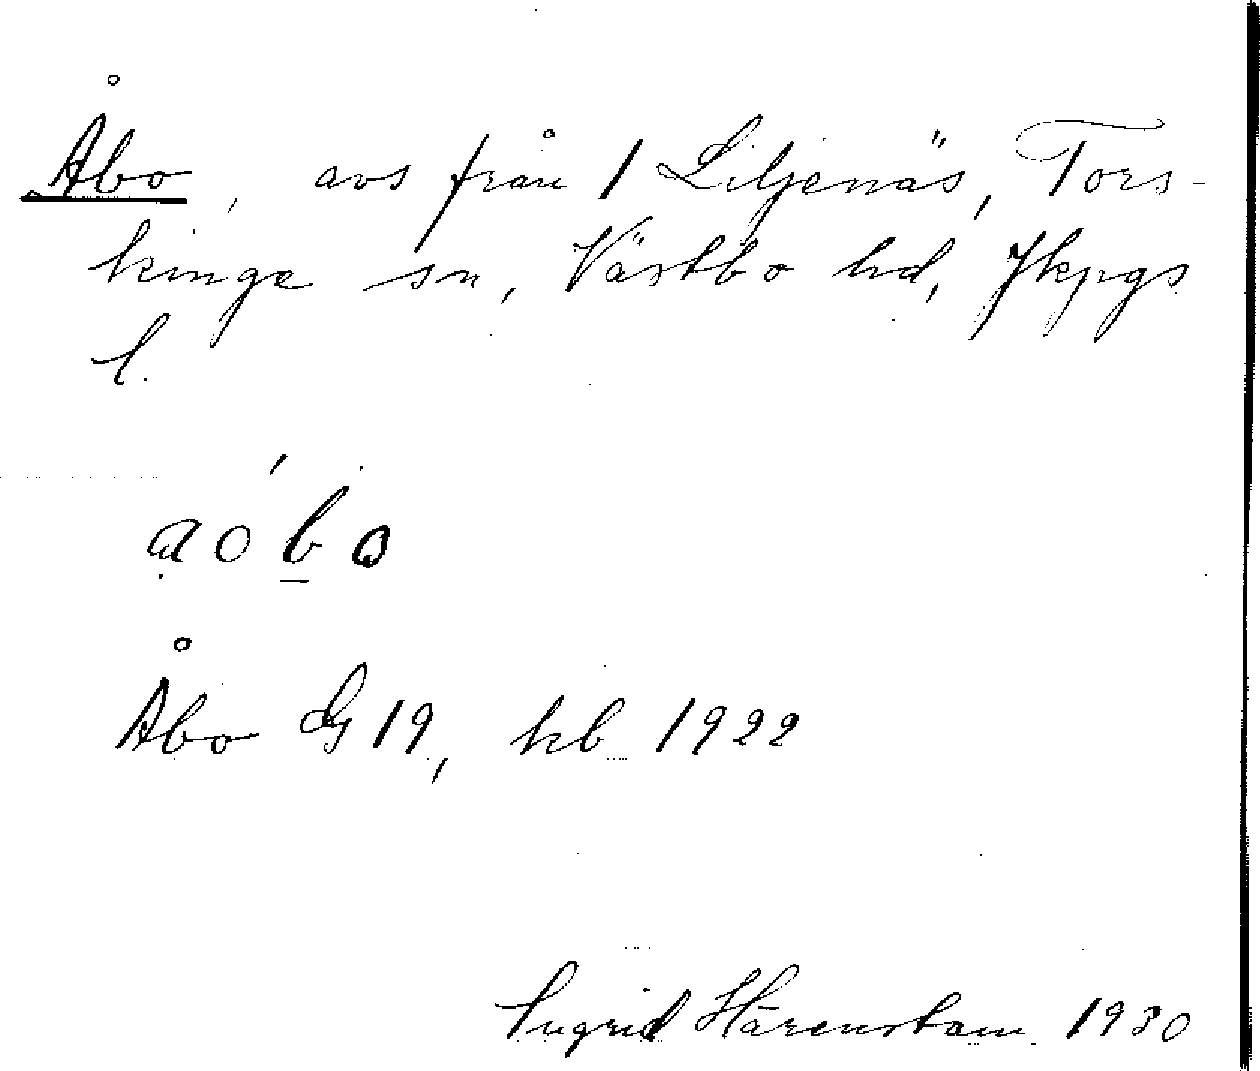 Åbo, avs från 1 Liljenäs, Tors-
kinge sn, Västbo hd, Jkpgs
l.
aóbo
Åbo G 19, hb 1922
Ingrid Härenstam 1930